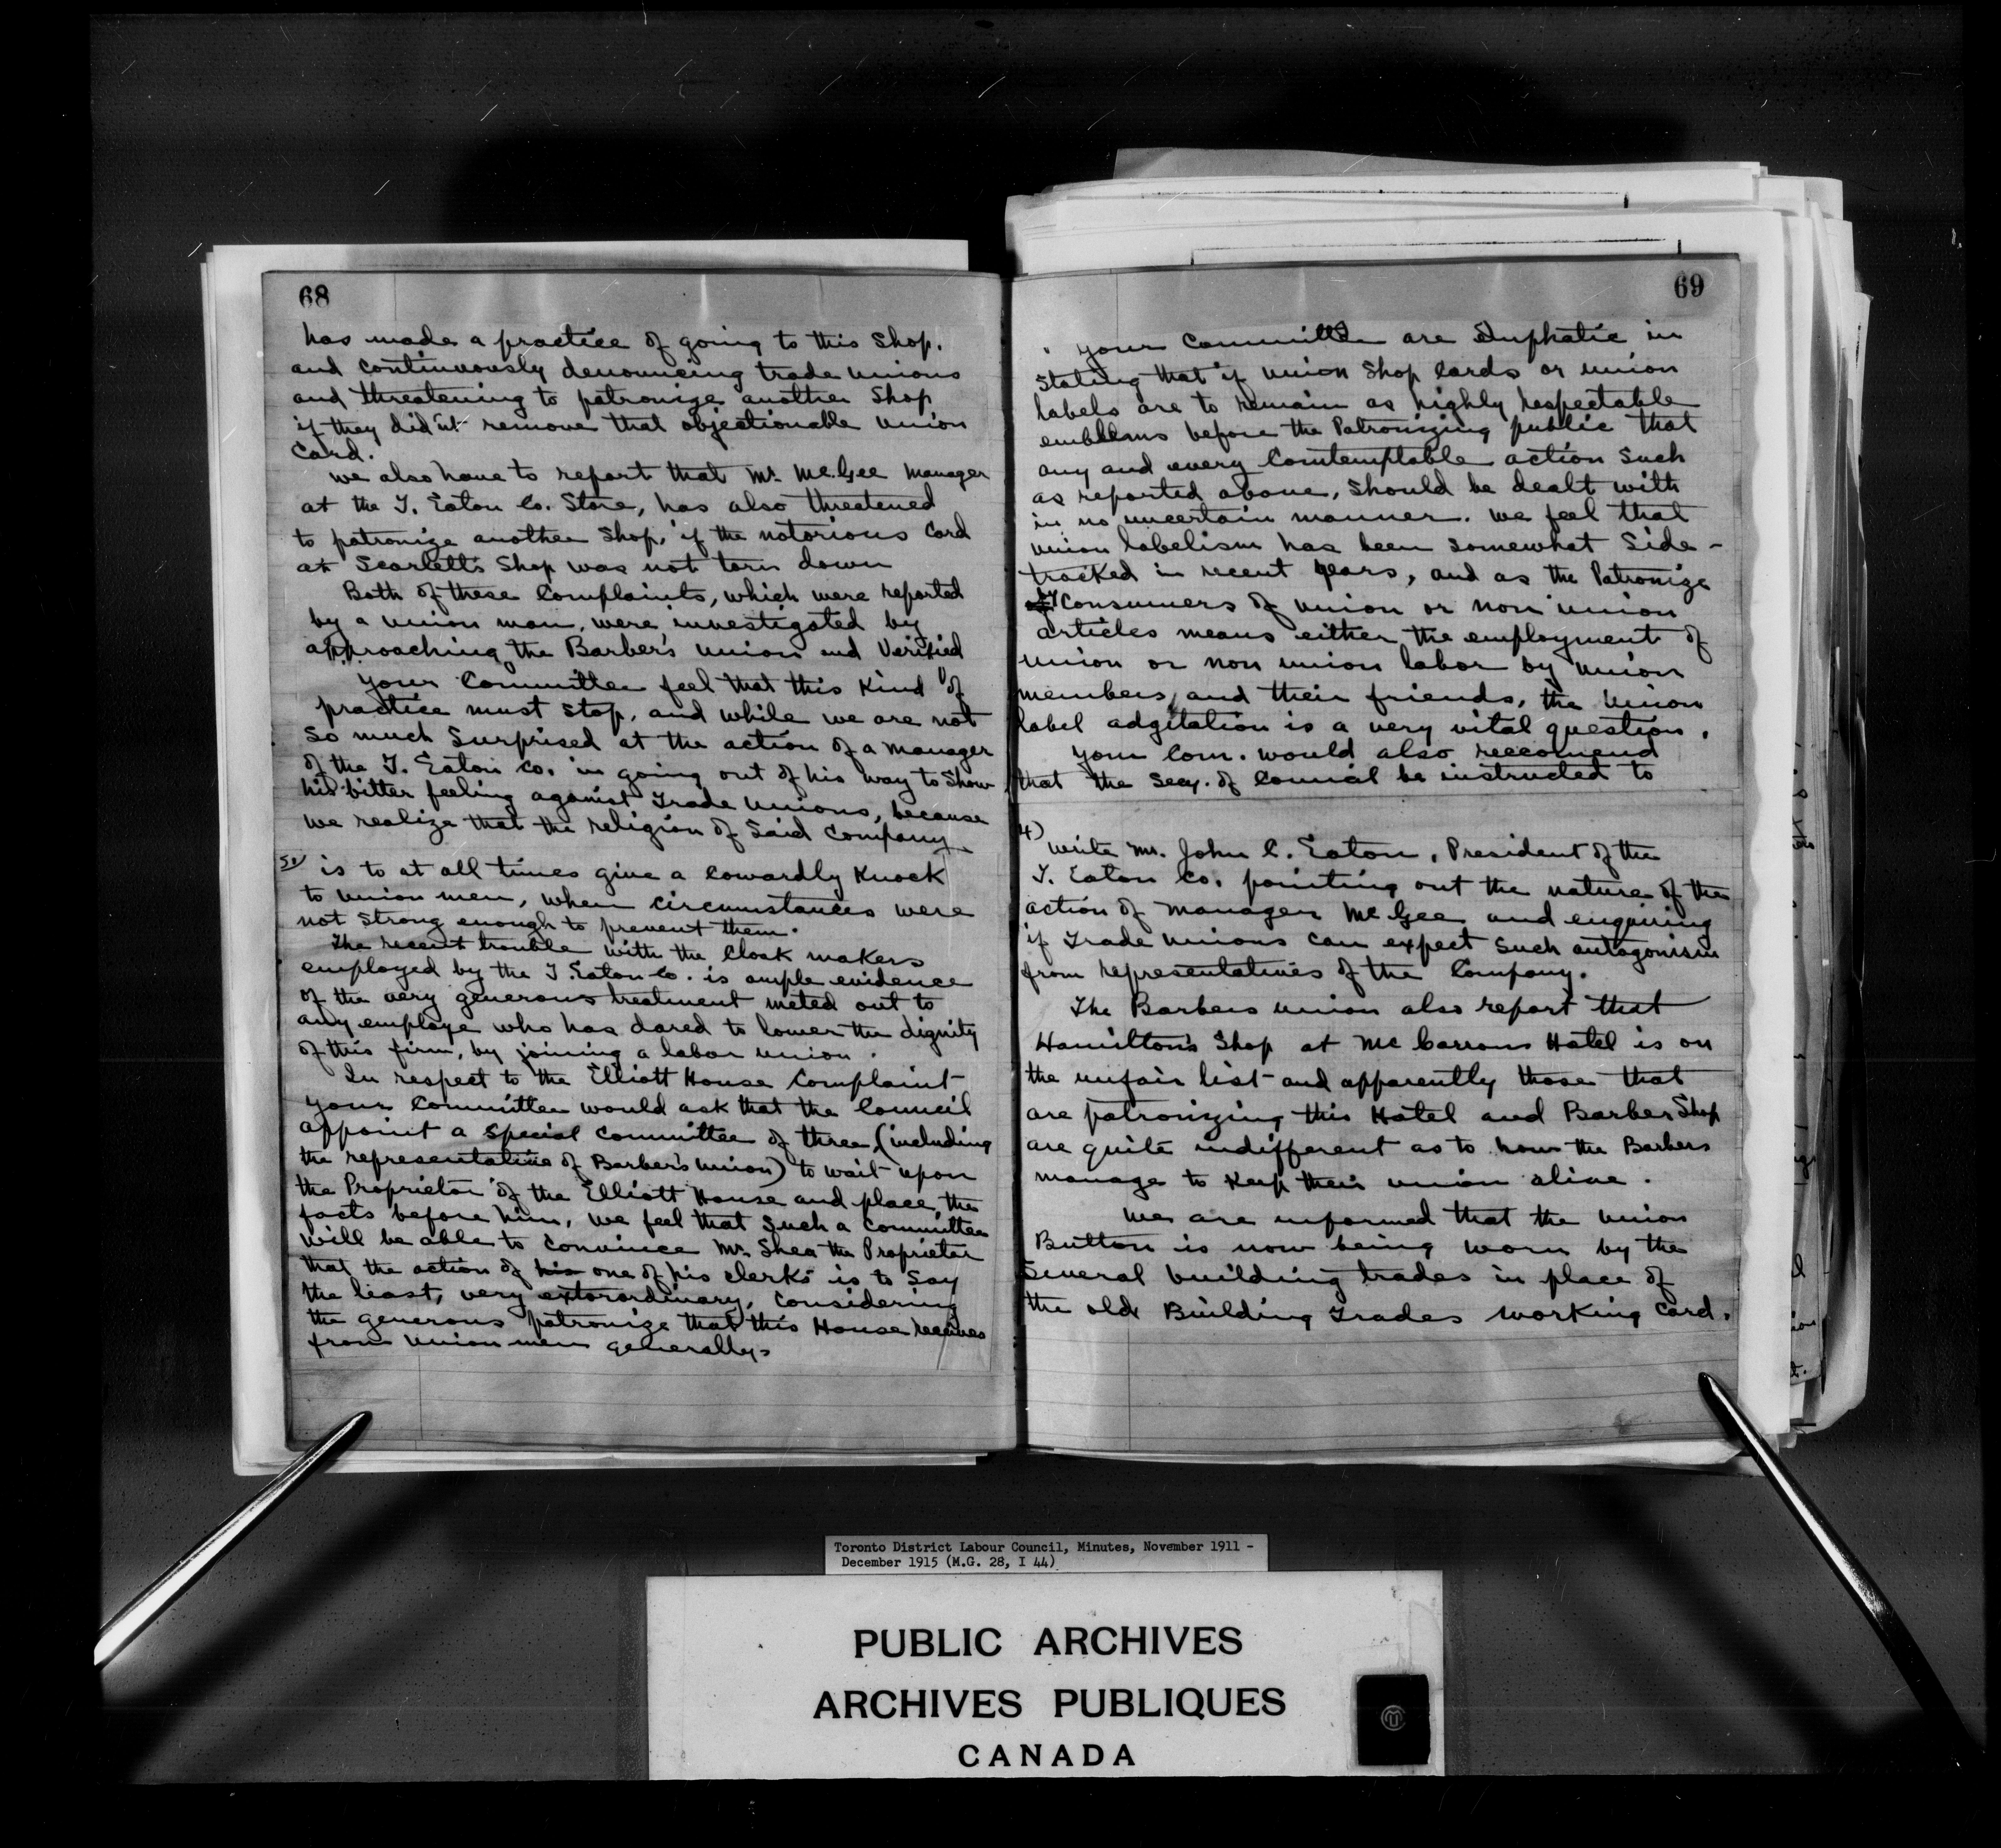 68
has made a practice of going to this Shop.
and continuously denouncing trade unions
and threatening to patronize another Shop
if they did'nt remove that objectionable union
Card.
we also have to report that Mr. McGee Manager
at the T. Eaton Co. Store, has also threatened
to patronize another Shop, if the notorious Card
at Scarlett's Shop was not torn down
Both of these Complaints, which were reported
by a union man, were investigated by
approaching the Barber's union and Verified
Your Committee feel that this Kind of
practice must stop, and while we are not
so much Surprised at the action of a manager
of the T. Eaton Co. in going out of his way to Show
his bitter feeling against Trade unions, because
we realize that the religion of Said Company
is to at all times give a Cowardly Knock
to union men, when circumstances were
not strong enough to prevent them.
The recent trouble with the Cloak makers
employed by the T Eaton Co. is ample evidence
of the very generous treatment meted out to
any employe who has dared to lower the dignity
of this firm, by joining a labor union.
In respect to the Elliott House Complaint
Your Committee would ask that the Council
appoint a special Committee of three, (including
the representative of Barber's union) to wait upon
the Proprietor of the Elliott House and place, the
facts before him, we feel that such a Committee
will be able to convince Mr. Shea the Proprietor
that the action of his one of his clerks is to Say
the least, very extorordinary, Considering
the generous patronize that this House receives
from union men generally.
69
Your Committee are Emphatic in
Stating that if union Shop Cards or union
labels are to remain as highly respectable
emblems before the Patronizing public that
any and every Comtemptable action Such
as reported above, Should be dealt with
in no uncertain manner. we feel that
union labelism has been somewhat Side-
tracked in recent years, and as the Patronize
by Consumers of union or non union
articles means either the employment of
union or non union labor by union
members, and their friends, the union
label adgitation is a very vital question.
Your Com. would also reccomend
that the Secy. of Council be instructed to
4)
write Mr. John C. Eaton, President of the
T. Eaton Co. pointing out the nature of the
action of Manager McGee and enquiring
if Trade unions can expect such antagonism
from representatives of the Company.
The Barbers union also report that
Hamilton's Shop at McCarrons Hotel is on
the unfair list and apparently those that
are patronizing this Hotel and Barber Shop
are quite indifferent as to how the Barbers
manage to Keep their union alive.
We are informed that the union
Button is now being worn by the
Several building trades in place of
the old Building Trades working Card.
Toronto District Labour Council, Minutes, November 1911 -
December 1915 (M.G. 28, I 44)
PUBLIC ARCHIVES
ARCHIVES PUBLIQUES
CANADA